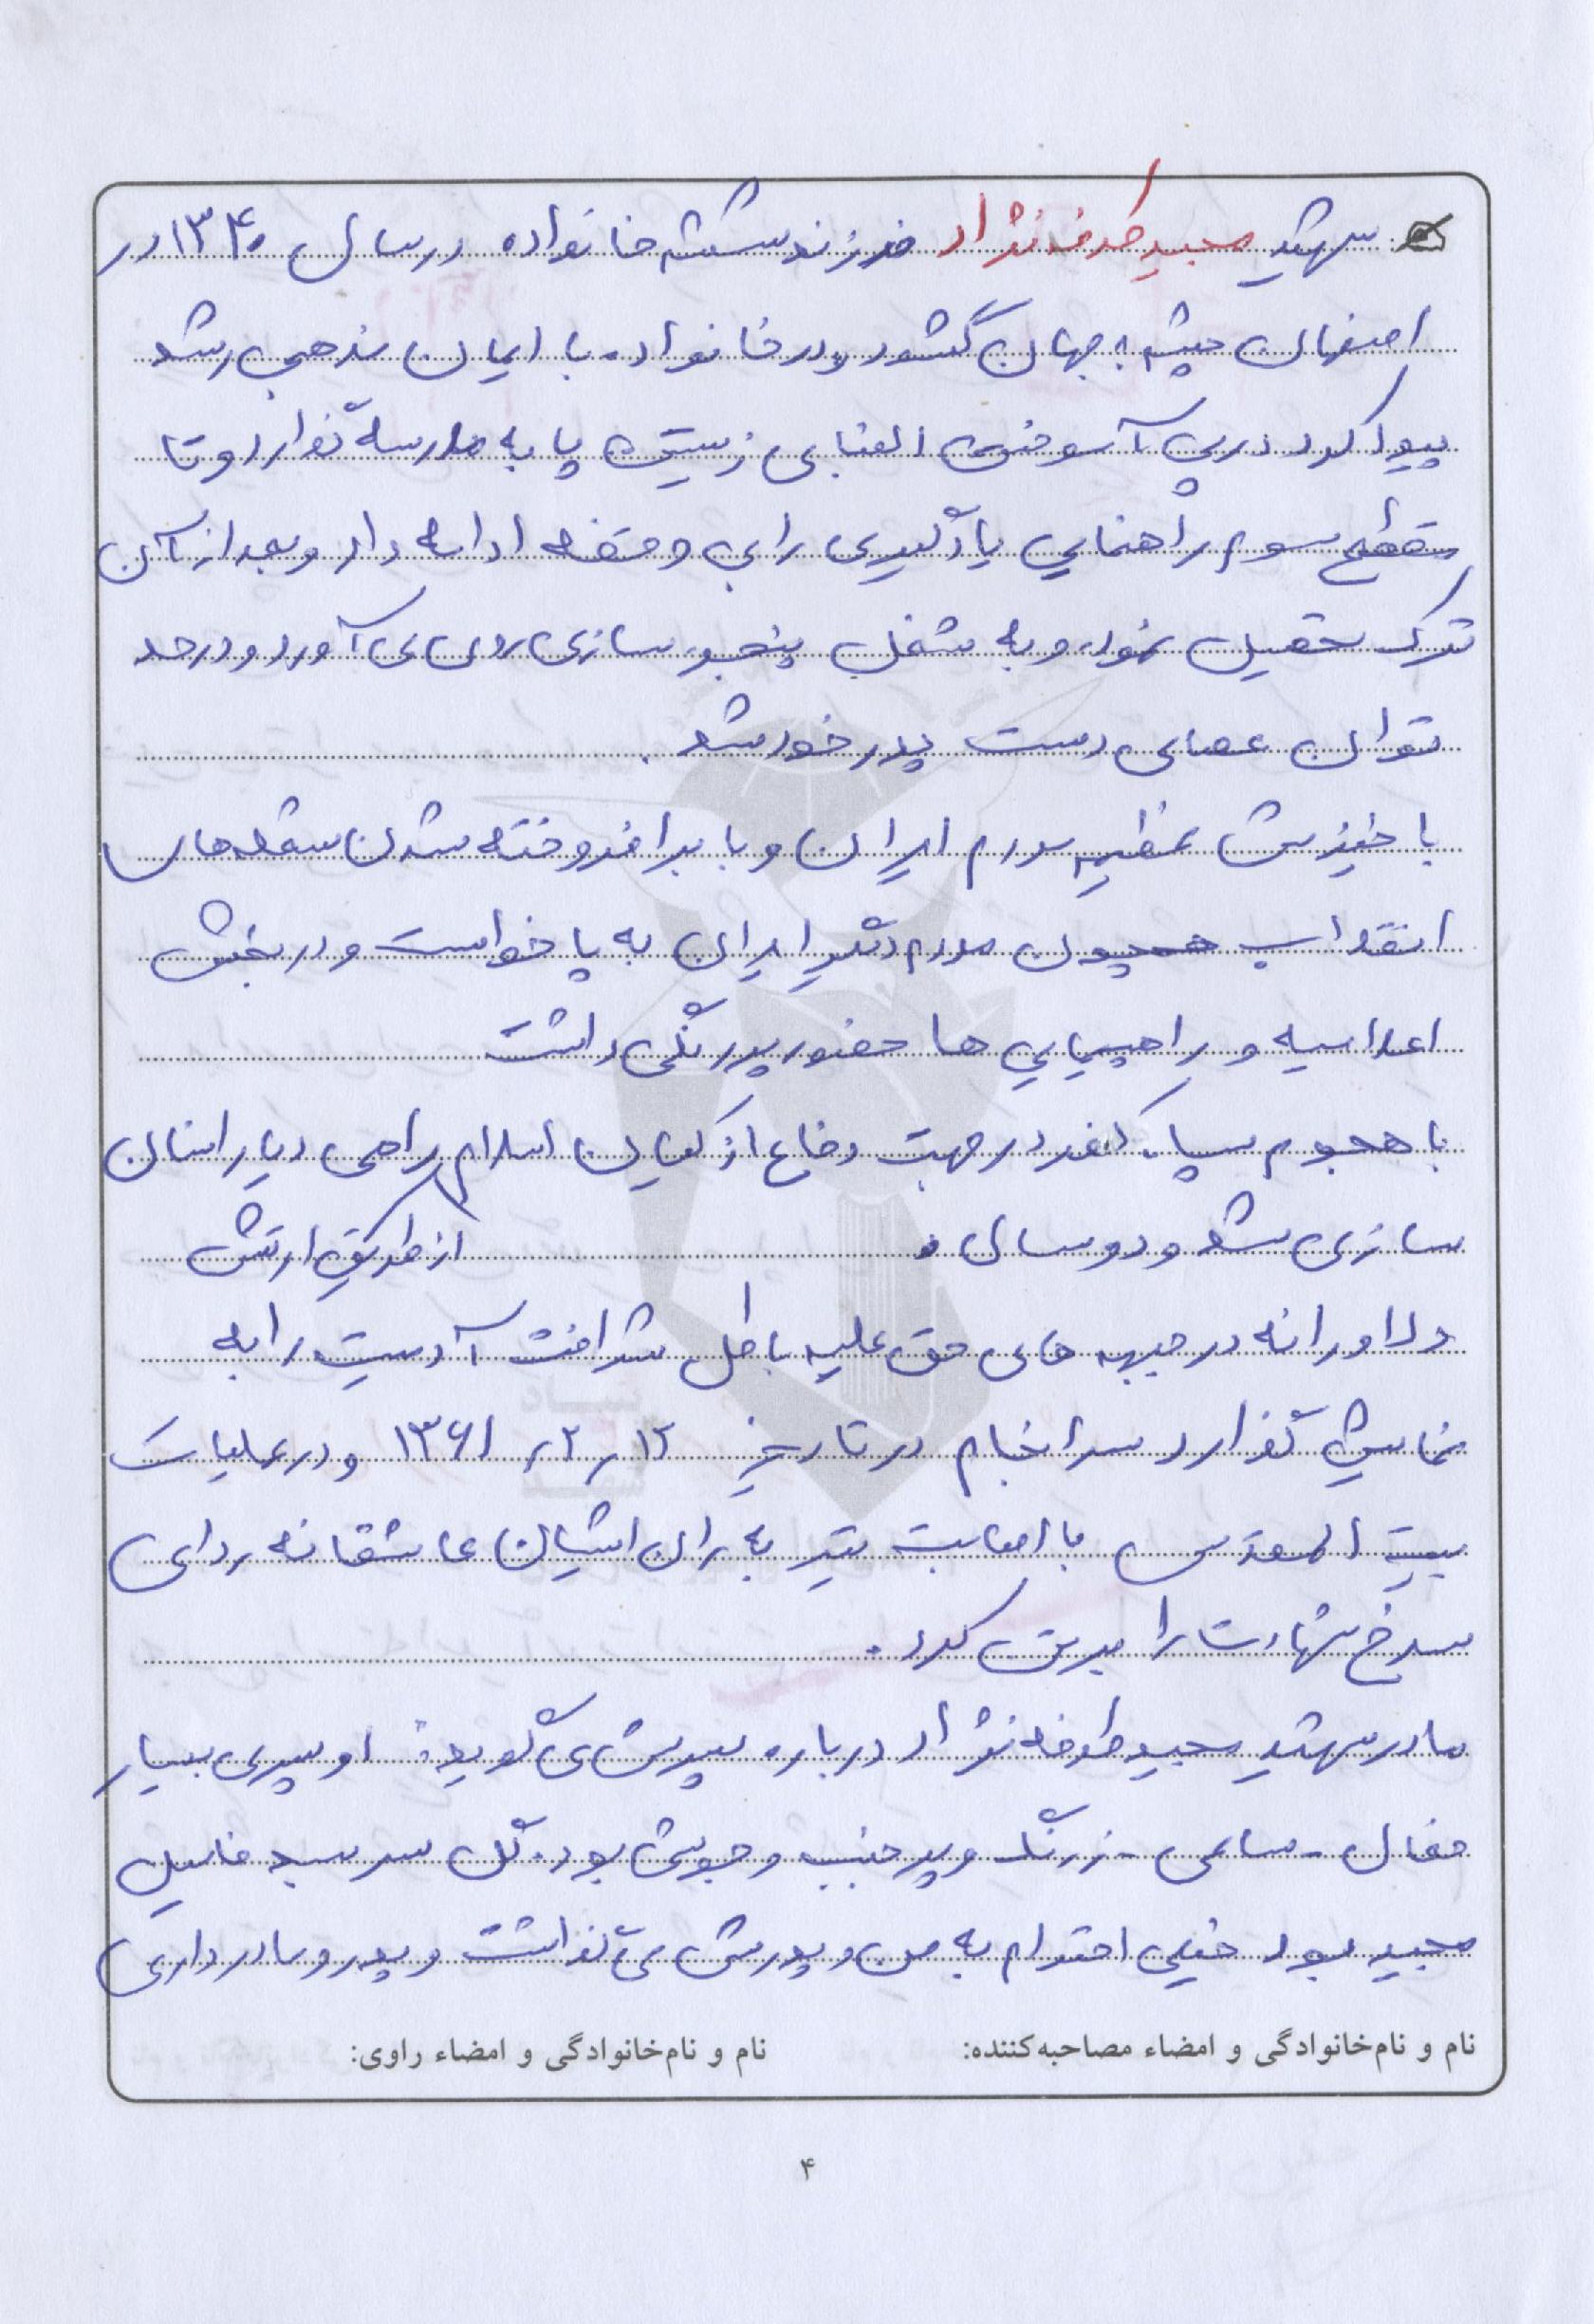 شهید مجید طرفه نژاد فرزند ششم خانواده در سال ۱۳۴۰ در
اصفهان چشم به جهان گشود و در خانواده با ایمان مذهبی رشد
پیدا کرد در پی آموختن الفبای زیستن پا به مدرسه گذارد و تا
مقطع سوم راهنمایی یادگیری را بی وقفه ادامه داد و بعد از آن
ترک تحصیل نمود و به شغل پنجره سازی روی می آورد و در حد
توان عصای دست پدر خود شد.
با خیزش عظیم مردم ایران و با برافروخته شدن شعله های
انقلاب همچون مردم دگر ایران به پا خواست و در پخش
اعلامیه و راهپیمایی ها حضور پررنگی داشت
با هجوم سپاه کفر در جهت دفاع از کیان اسلام راهی دیار انسان
سازی شد و دو سال از طریق ارتش
دلاورانه در جبهه های حق علیه باطل شرافت آدمیت را به
نمایش گذارد سرانجام در تاریخ ۱۲ر۲ر۱۳۶۱ و در عملیات
بیت المقدس با اصابت تیر به ران ایشان عاشقانه ردای
سرخ شهادت را برتن کرد.
مادر شهید مجید طرفه نژاد درباره پسرش می گوید: او پسری بسیار
فعال - سالمی - زرنگ و پر جنب و جوش بود. گل سر سبد فامیل
مجید بود خیلی احترام به من و پدرش می گذاشت و پدر و مادرداری
نام و نام‌خانوادگی و امضاء مصاحبه‌کننده: نام و نام‌خانوادگی و امضاء راوی:
۴